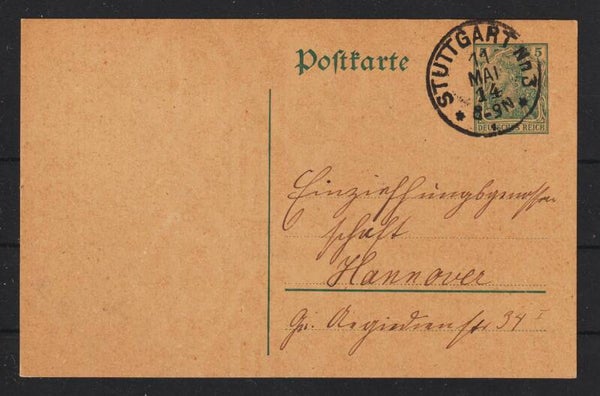 Postkarte
STUTTGART Nr. 3
11
MAI
14
8-9N
5
DEUTSCHES REICH
Einziehungsgenossen
schaft
Hannover
Gr. Aegidienstr 34 I